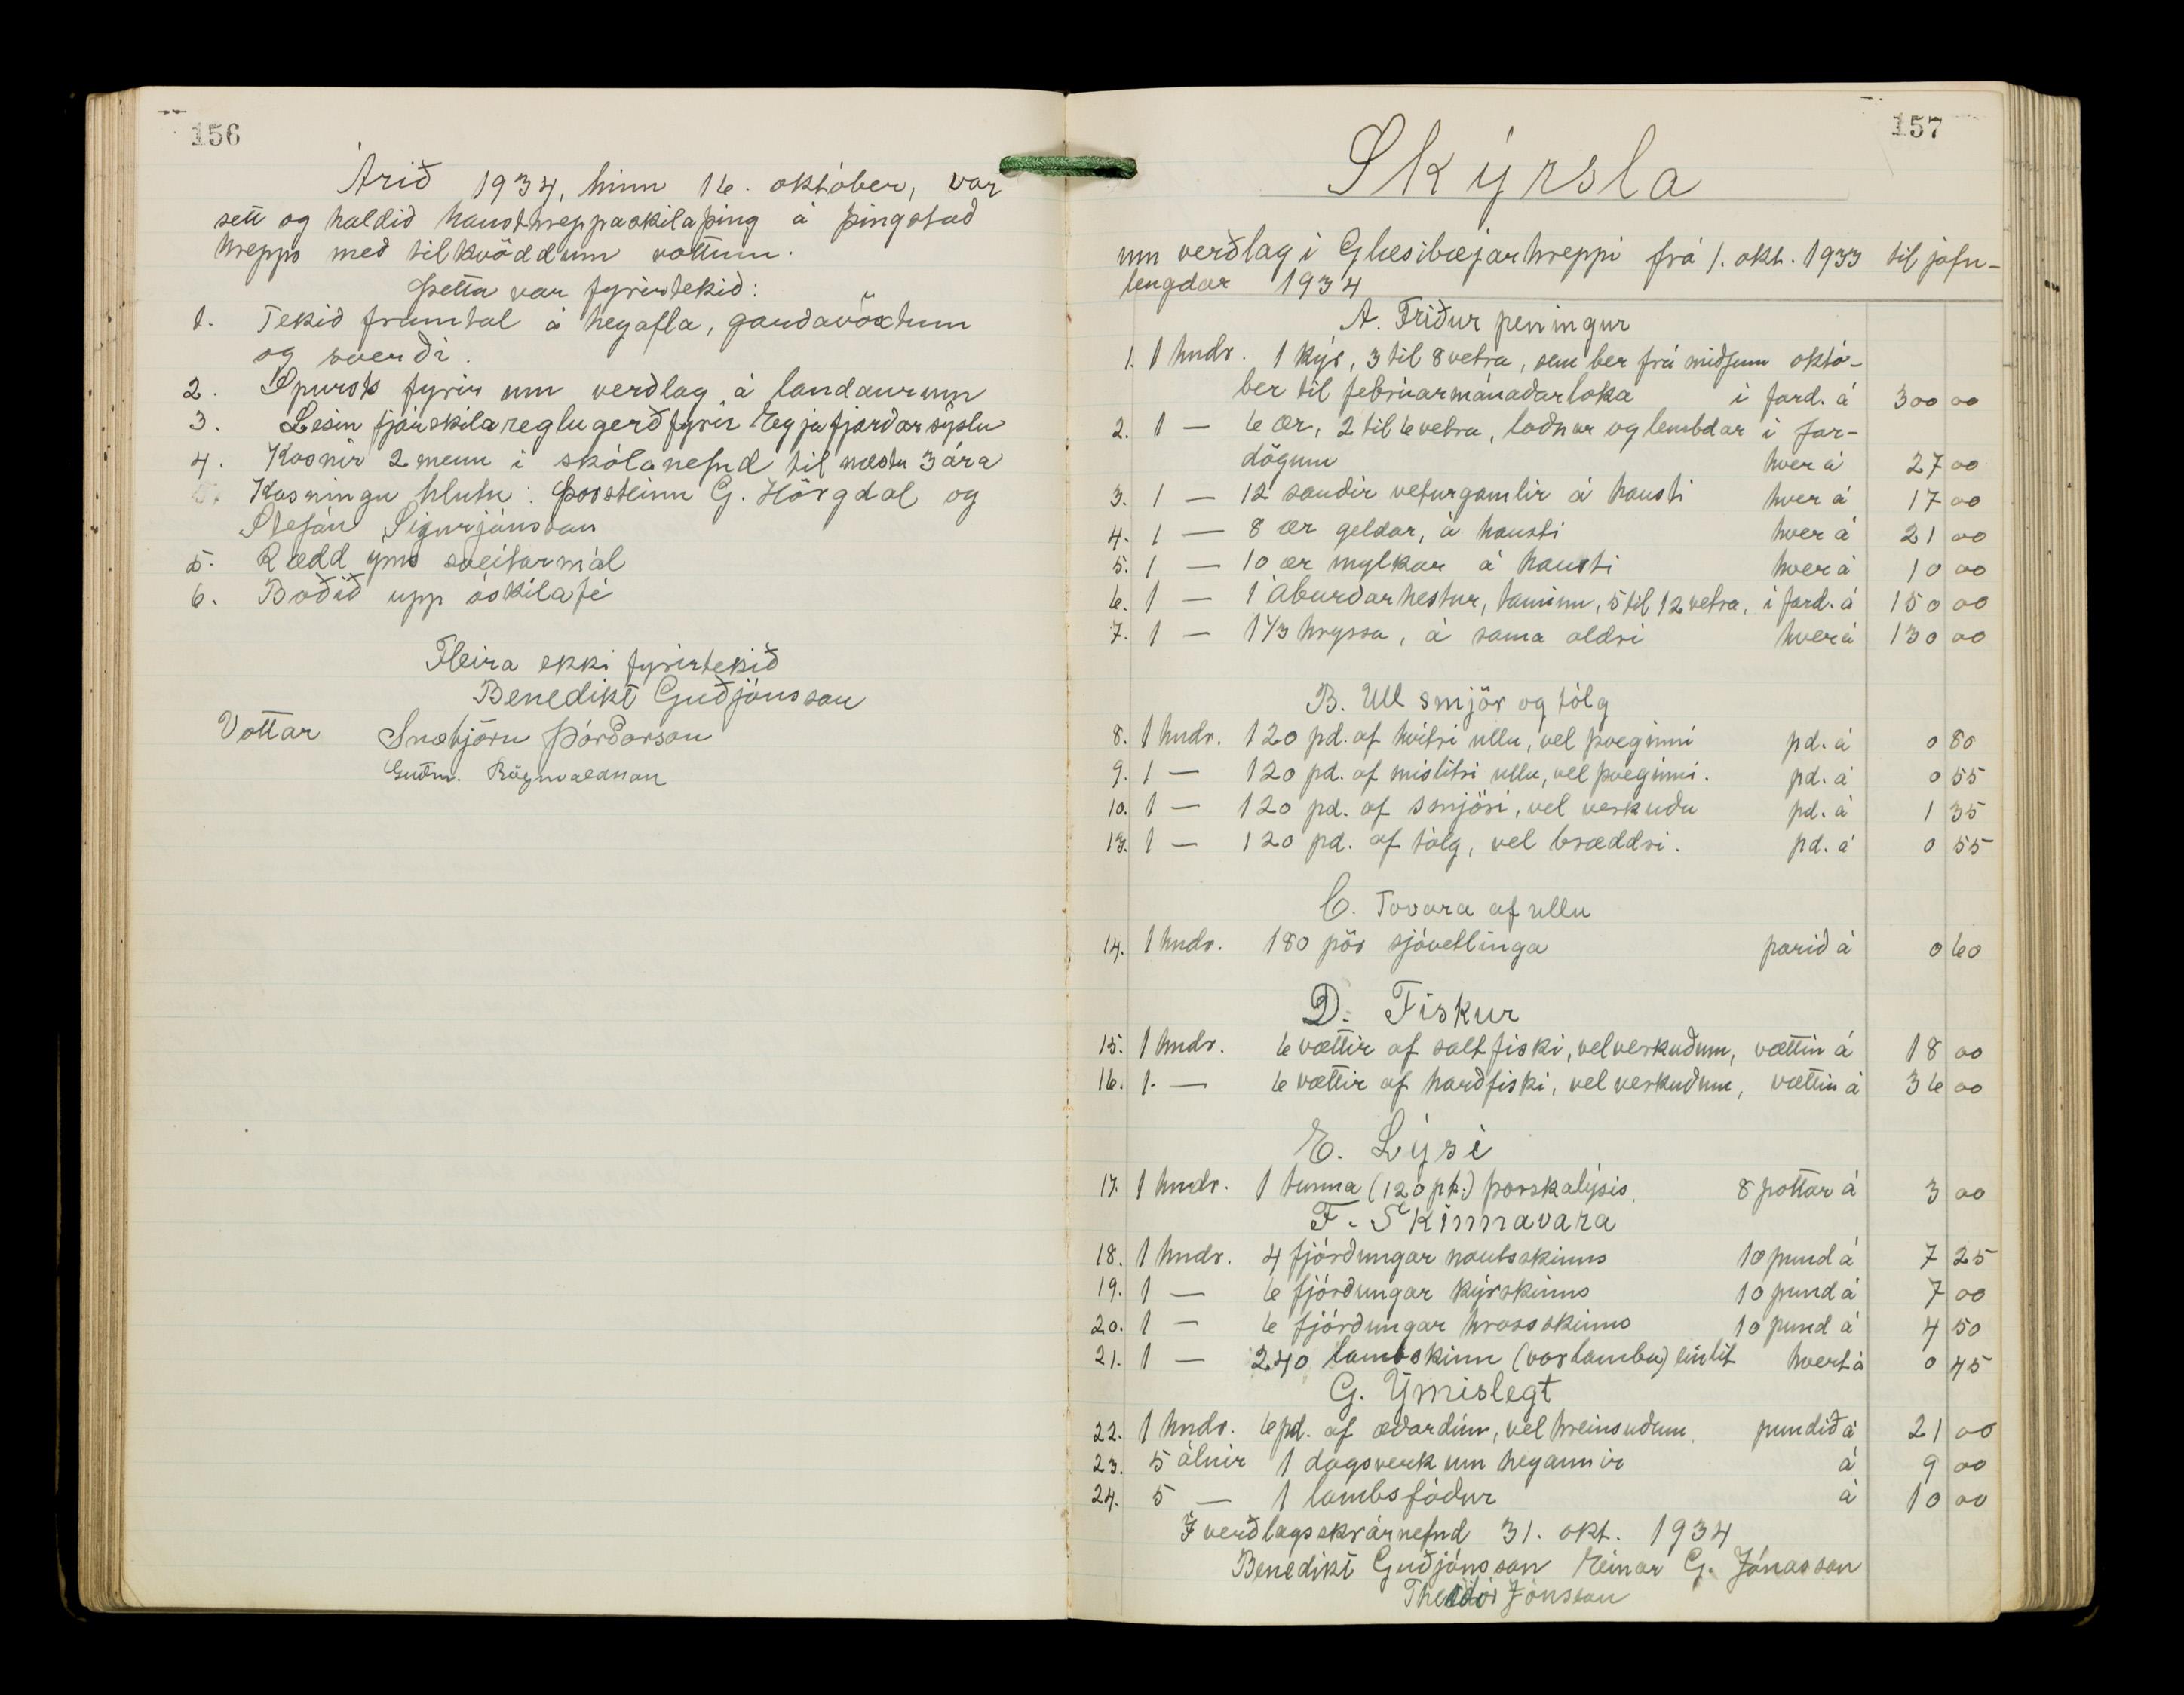 156
Árið 1934, hinn 16. október, var
sett og haldið hausthreppaskilaþing á þingstað
hrepps með tilkvöddum vottum.
Þetta var fyrirtekið:
1. Tekið framtal á heyafla, garðavöxtum
og sverði.
2. Spurst fyrir um verðlag á landaurum
3. Lesin fjárskilareglugerð fyrir Eyjafjarðarsýslu
4. Kosnir 2 menn í skólanefnd til næstu 3 ára
Kosningu hlutu: Þorsteinn G. Hörgdal og
Stefán Sigurjónsson
5. Rædd ýms sveitarmál
6. Boðið upp óskilafé
Fleira ekki fyrirtekið
Benedikt Guðjónsson
Vottar Snæbjörn Þórðarson
Guðm. Rögnvaldsson
157
Skýrsla
um verðlag í Glæsibæjarhreppi frá 1. okt. 1933 til jafn-
lengdar 1934
A. Fríður peningur
1. 1 hndr. 1 kýr, 3 til 8 vetra, sem ber frá miðjum októ-
ber til febrúarmánaðarloka í fard. á 300 00
2. 1 — 6 ær, 2 til 6 vetra, loðnar og lembdar í far-
dögum hver á 27 00
3. 1 — 12 sauðir veturgamlir á hausti hver á 17 00
4. 1 — 8 ær geldar, á hausti hver á 21 00
5. 1 — 10 ær mylkar á hausti hver á 10 00
6. 1 — 1 áburðarhestur, taminn, 5 til 12 vetra, í fard. á 150 00
7. 1 — 1 1/3 hryssa, á sama aldri hver á 130 00
B. Ull smjör og tólg
8. 1 hndr. 120 pd. af hvítri ullu, vel þveginni pd. á 0 80
9. 1 — 120 pd. af mislitri ullu, vel þveginni. pd. á 0 55
10. 1 — 120 pd. af smjöri, vel verkuðu pd. á 1 35
13. 1 — 120 pd. af tólg, vel bræddri. pd. á 0 55
C. Tovara af ullu
14. 1 hndr. 180 pör sjóvetlinga parið á 0 60
D. Fiskur
15. 1 hndr. 6 vættir af saltfiski, vel verkuðum, vættin á 18 00
16. 1. — 6 vættir af harðfiski, vel verkuðum, vættin á 36 00
E. Lýsi
17. 1 hndr. 1 tunna (120 pt.) þorskalýsis. 8 pottar á 3 00
F. Skinnavara
18. 1 hndr. 4 fjórðungar nautsskinns 10 pund á 7 25
19. 1 — 6 fjórðungar kýrskinns 10 pund á 7 00
20. 1 — 6 fjórðungar hrossskinns 10 pund á 4 50
21. 1 — 240 lambskinn (vorlamba) einlit hvert á 0 45
G. Ýmislegt
22. 1 hndr. 6 pd. af æðardún, vel hreinsuðum. pundið á 21 00
23. 5 álnir 1 dagsverk um heyannir á 9 00
24. 5 — 1 lambsfóður á 10 00
Í verðlagsskrárnefnd 31. okt. 1934
Benedikt Guðjónsson Einar G. Jónasson
Theódór Jónsson